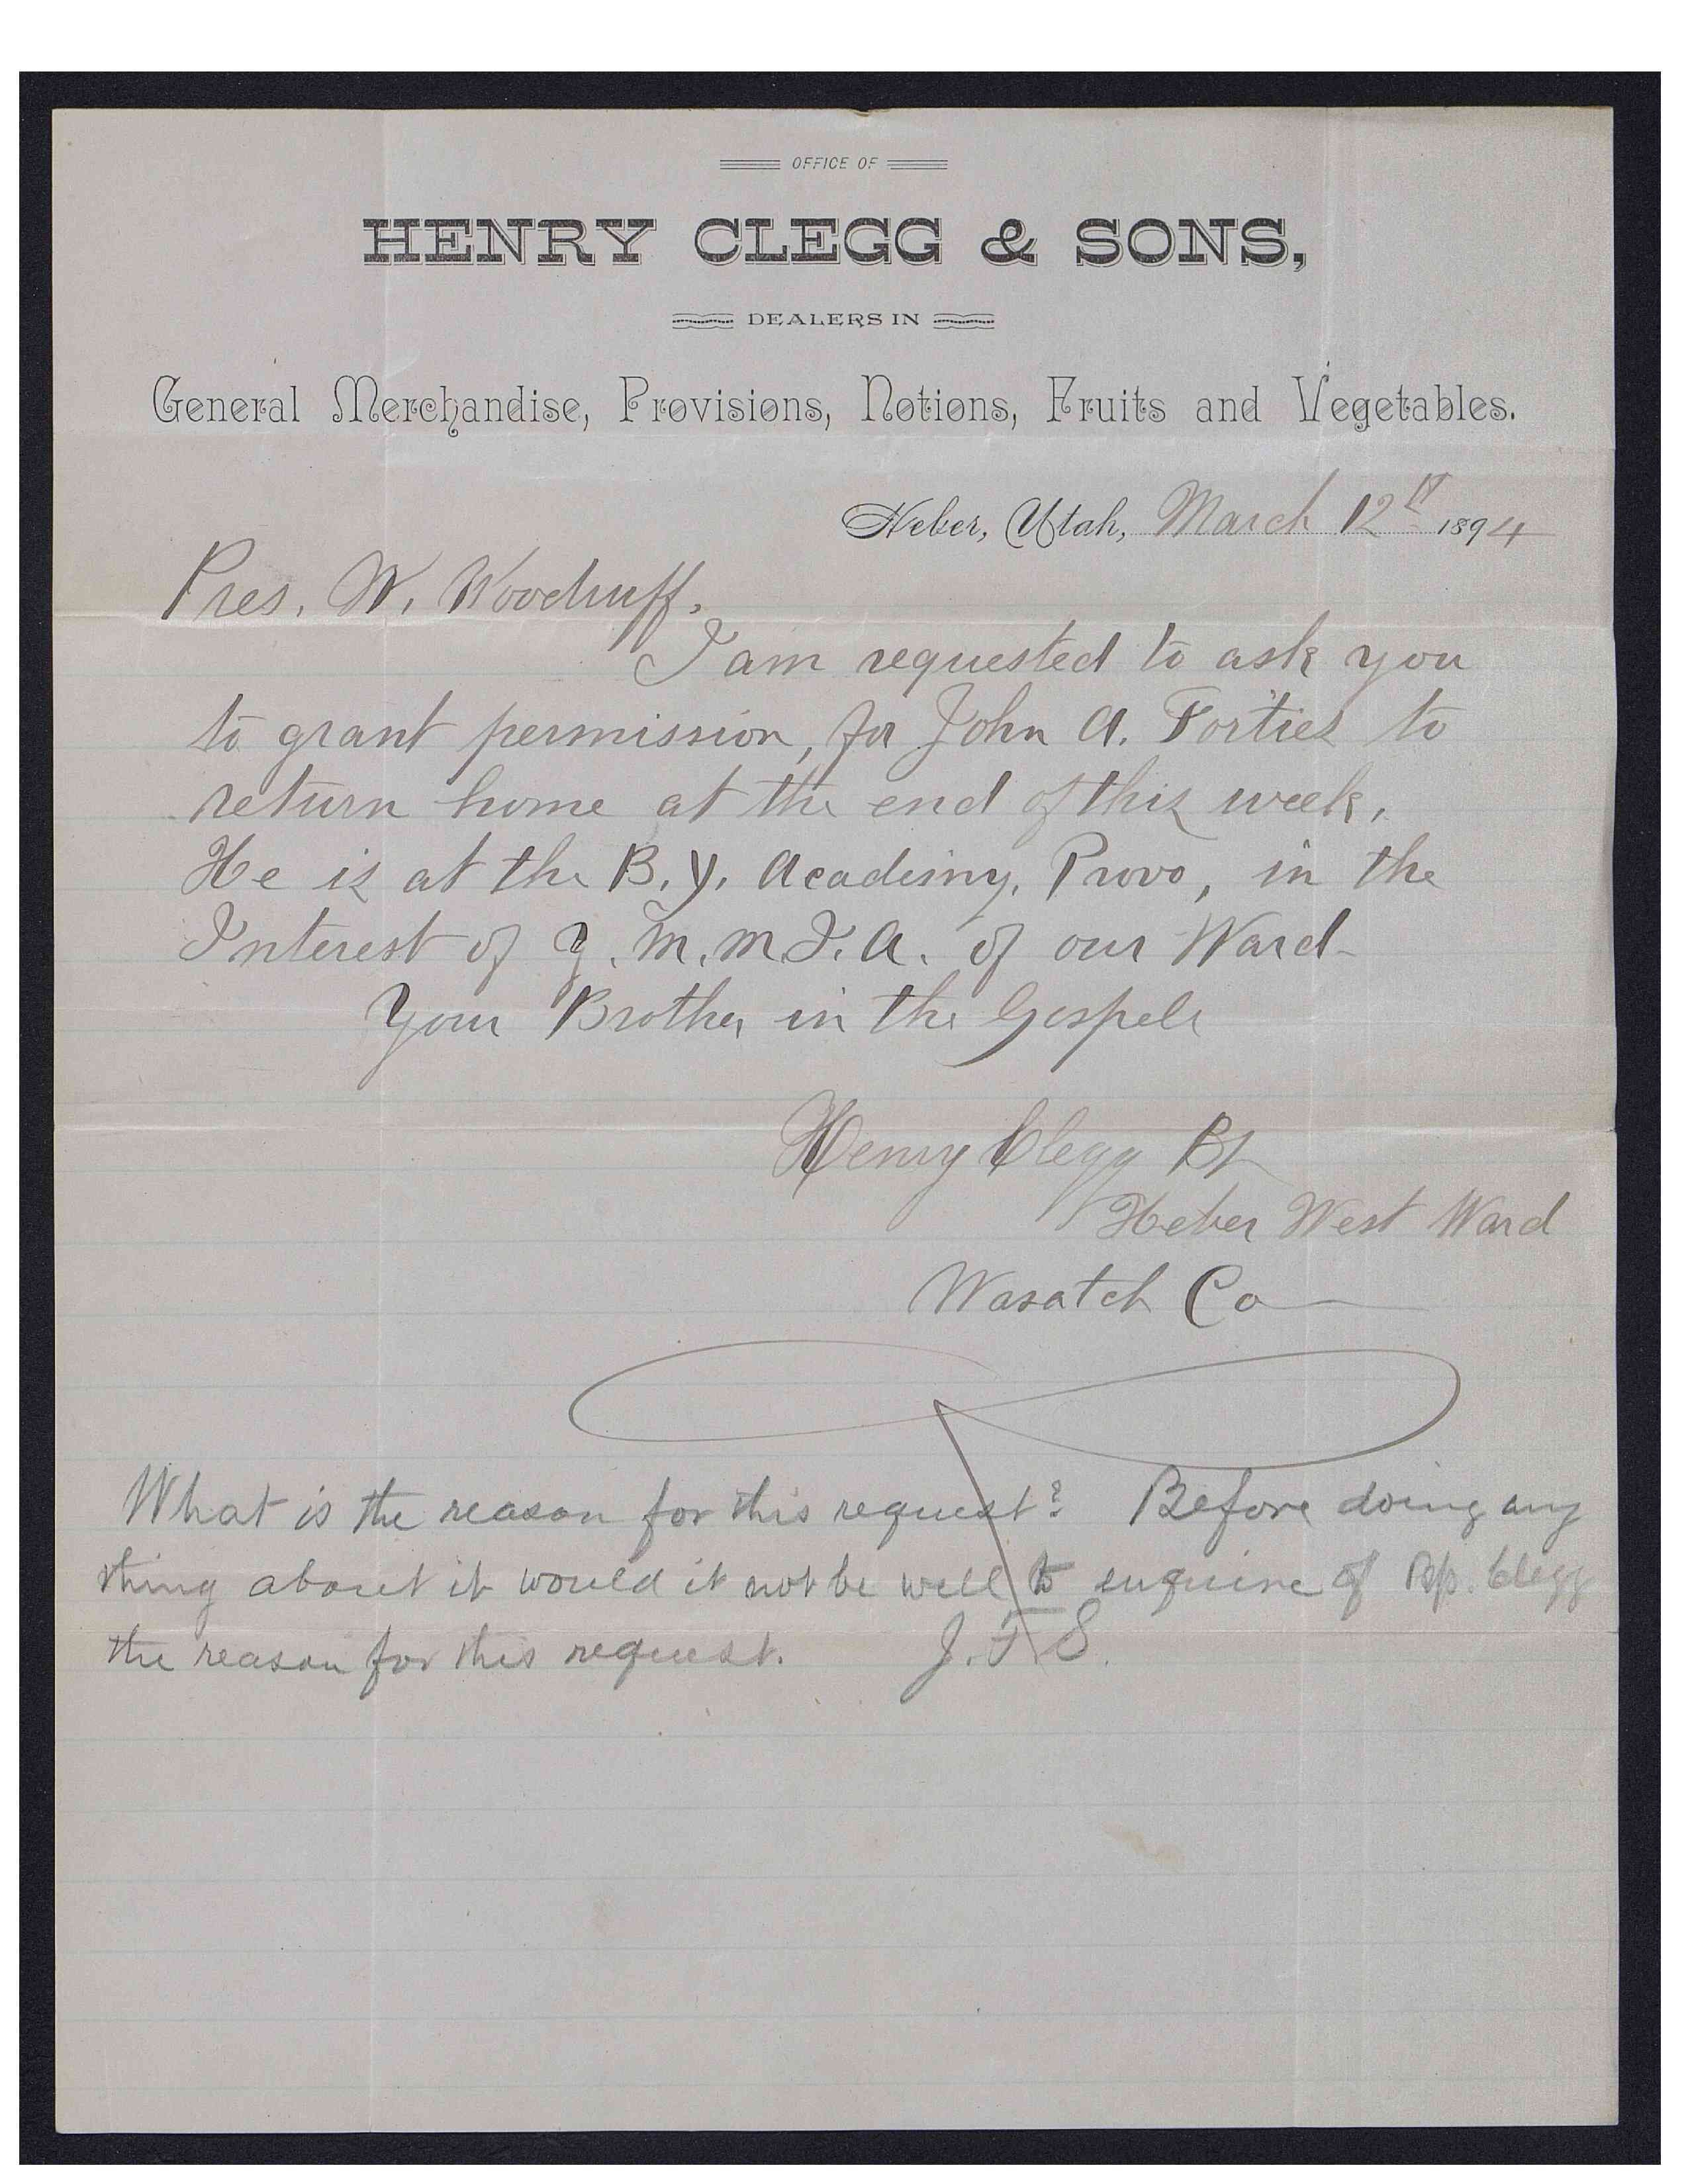 OFFICE OF
HENRY CLEGG & SONS,
DEALERS IN
General Merchandise, Provisions, Notions, Fruits and Vegetables.
Heber, Utah, March 12th 1894
Pres. W. Woodruff.
I am requested to ask you
to grant permission, for John A. Forties to
return home at the end of this week,
He is at the B. Y. Academy, Provo, in the
Interest of Y. M. M. I. A. of our Ward-
Your Brother in the Gospel
Henry Clegg Bp
Heber West Ward
Wasatch Co
What is the reason for this request? Before doing any
thing about it would it not be well to enquire of Bp. Clegg
the reason for this request. J. F. S.